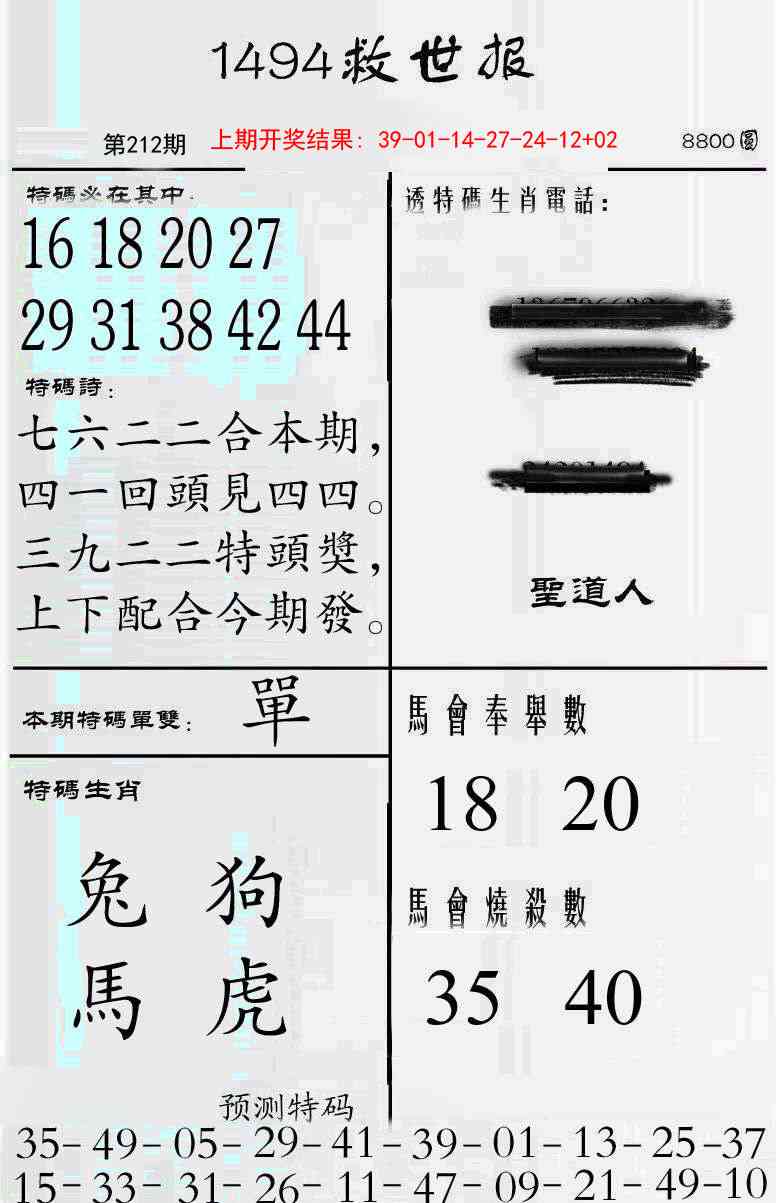 1494救世报
第212期 上期开奖结果: 39-01-14-27-24-12+02 8800圆
特碼必在其中:
16 18 20 27
29 31 38 42 44
特碼詩:
七六二二合本期,
四一回頭見四四。
三九二二特頭獎,
上下配合今期發。
透特碼生肖電話:
聖道人
本期特碼單雙: 單
特碼生肖
兔 狗
馬 虎
馬會奉舉數
18 20
馬會燒殺數
35 40
预测特码
35-49-05-29-41-39-01-13-25-37
15-33-31-26-11-47-09-21-49-10